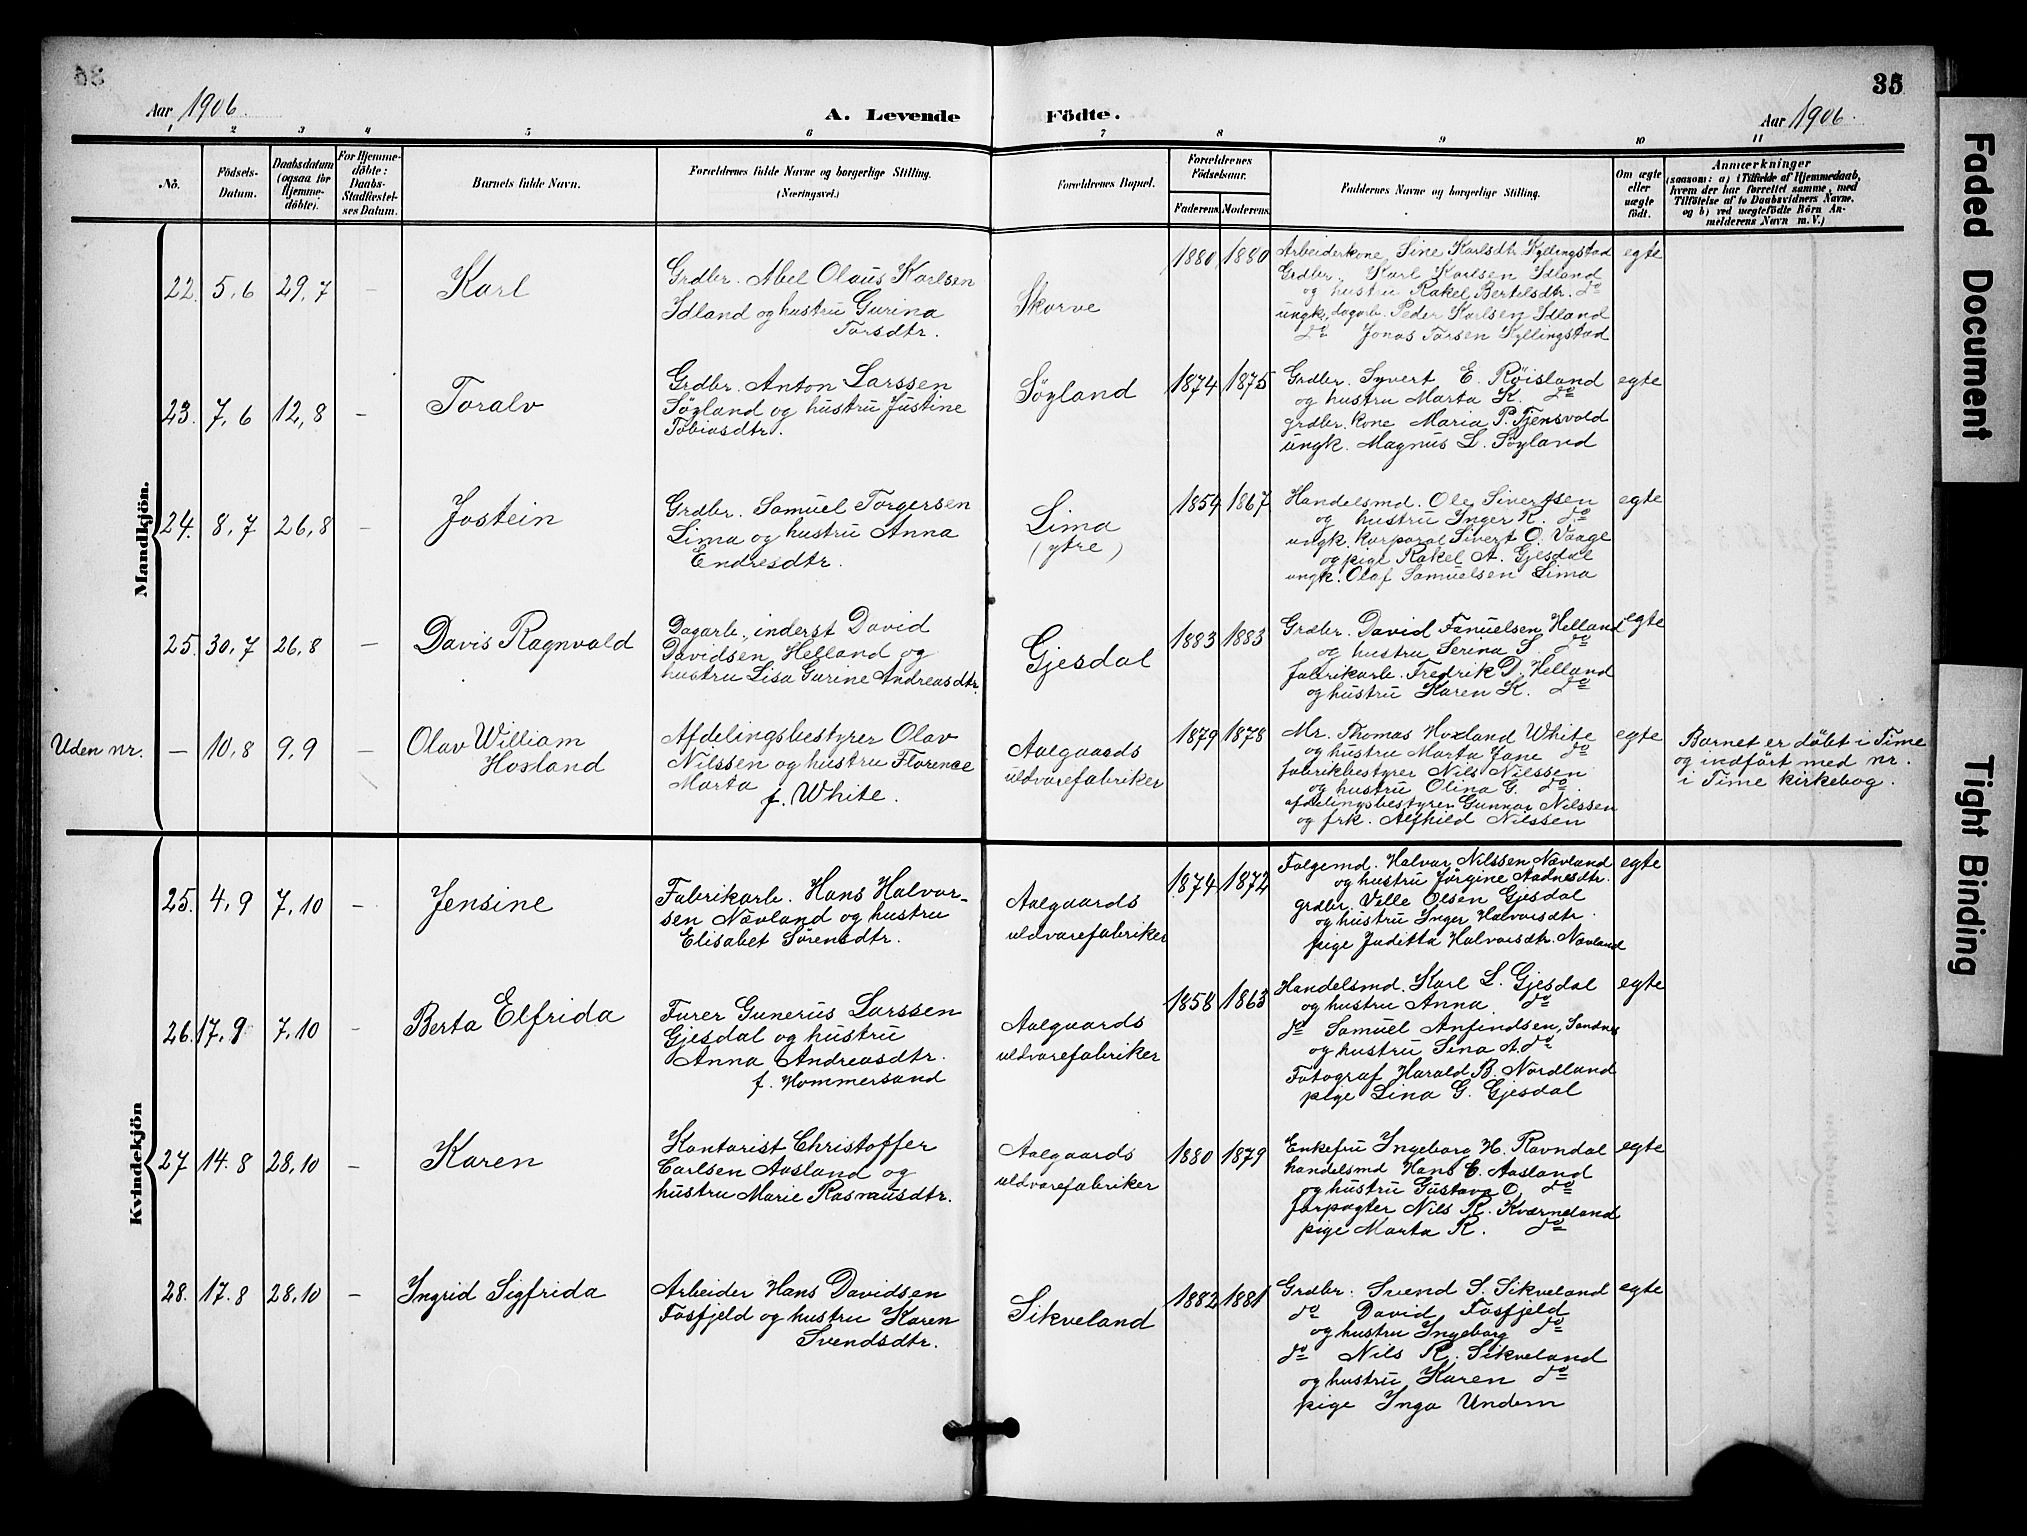 35
Aar 1906.
A. Levende Födte.
Aar 1906.
1 2 3 4 5 6 7 8 9 10 11
No.
Födsels-
Datum.
Daabsdatum
(ogsaa for
Hjemme-
döbte).
For Hjemme-
döbte:
Daabs-
Stadfæstel-
ses Datum.
Barnets fulde Navn.
Forældrenes fulde Navne og borgerlige Stilling.
(Næringsvei.)
Forældrenes Bopæl.
Forældrenes
Födselsaar.
Faderens. Moderens.
Faddernes Navne og borgerlige Stilling.
Om ægte
eller
uægte
födt.
Anmærkninger
(saasom: a) i Tilfælde af Hjemmedaab,
hvem der har forrettet samme, med
Tilföielse af to Daabsvidners Navne.
og b) ved uægtefödte Börn An-
melderens Navn m. V.)
Mandkjön.
22. 5,6 29,7 – Karl
Grdbr. Abel Olaus Karlsen
Idland og hustru Gurina
Torsdtr.
Skorve
1880 1880
Arbeiderkone Sine Karlsdtr. Kyllingstad
Grdbr. Karl Karlsen Idland
og hustru Rakel Bertelsdtr. do
ungk. dagarb. Peder Karlsen Idland
do Jonas Torsen Kyllingstad
egte
23. 7,6 12,8 – Toralv
Grdbr. Anton Larssen
Søyland og hustru Justine
Tobiasdtr.
Søyland
1874 1875
Grdbr. Syvert E. Røisland
og hustru Marta K. do
grdbr. kone Maria P. Tjensvold
ungk. Magnus L. Søyland
egte
24. 8,7 26,8 – Jostein
Grdbr. Samuel Torgersen
Lima og hustru Anna
Endresdtr.
Lima
(ytre)
1859 1867
Handelsmd. Ole Sivertsen
og hustru Inger K. do
ungk. korporal Sivert O. Vaage
og pige Rakel A. Gjesdal
ungk. Olaf Samuelsen Lima
egte
25. 30,7 26,8 – Davis Ragnvald
Dagarb., inderst David
Davidsen Helland og
hustru Lisa Gurine Andreasdtr.
Gjesdal
1883 1883
Grdbr. David Fanuelsen Helland
og hustru Serina S. do
fabrikarb. Fredrik D. Helland
og hustru Karen K. do
egte
Uden nr. – 10,8 9,9 – Olav William
Hoxland
Afdelingsbestyrer Olav
Nilssen og hustru Florence
Marta
f. White.
Aalgaards
uldvarefabriker
1879 1878
Mr. Thomas Hoxland White
og hustru Marta Jane do
fabrikbestyrer Nils Nilssen
og hustru Olina G. do.
afdelingsbestyrer Gunnar Nilssen
og frk. Alfhild Nilssen
egte
Barnet er døbt i Time
og indført med nr.
i Time kirkebog.
Kvindekjön
25. 4,9 7,10 – Jensine
Fabrikarb. Hans Halvor-
sen Nævland og hustru
Elisabet Sørensdtr.
Aalgaards
uldvarefabriker
1874 1872
Folgemd. Halvar Nilssen Nævland
og hustru Jørgine Aadnesdtr.
grdbr. Ville Olsen Gjesdal
og hustru Inger Halvorsdtr.
pige Juditta Halvorsdtr. Nævland
egte
26. 17,9 7,10 – Berta Elfrida
Furer Gunerius Larssen
Gjesdal og hustru
Anna Andreasdtr.
f. Hommersand
Aalgaards
uldvarefabriker
1858 1863
Handelsmd. Karl L. Gjesdal
og hustru Anna do
do Samuel Anfindsen, Sandnes
og hustru Sina A. do
Fotograf Harald B. Nordland
pige Lina G. Gjesdal
egte
27 14.8 28,10 – Karen
Kontorist Christoffer
Carlsen Aasland og
hustru Marie Rasmusdtr.
Aalgaards
uldvarefabriker
1880 1879
Enkefru Ingeborg H. Ravndal
handelsmd Hans C. Aasland
og hustru Gustava O. do
forpagter Nils R. Kværneland
pige Marta R. do
egte
28. 17.8 28,10 – Ingrid Sigfrida
Arbeider Hans Davidsen
Fosfjeld og hustru Karen
Svendsdtr.
Sikveland
1882 1881
Grdbr. Svend S. Sikveland
do David Fosfjeld
og hustru Ingeborg do
do Nils R. Sikveland
og hustru Karen do
pige Inga Undem
egte
Faded Document
Tight Binding